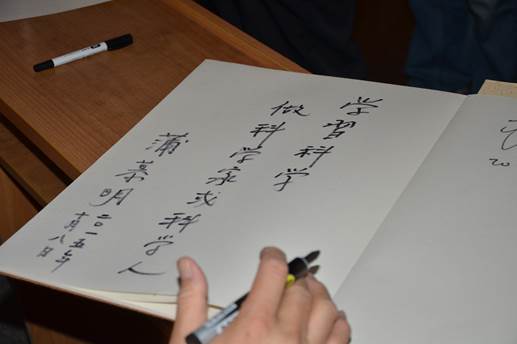 学習科学
做科学家或科学人
蒲慕明
二〇一五年
十月八日
20